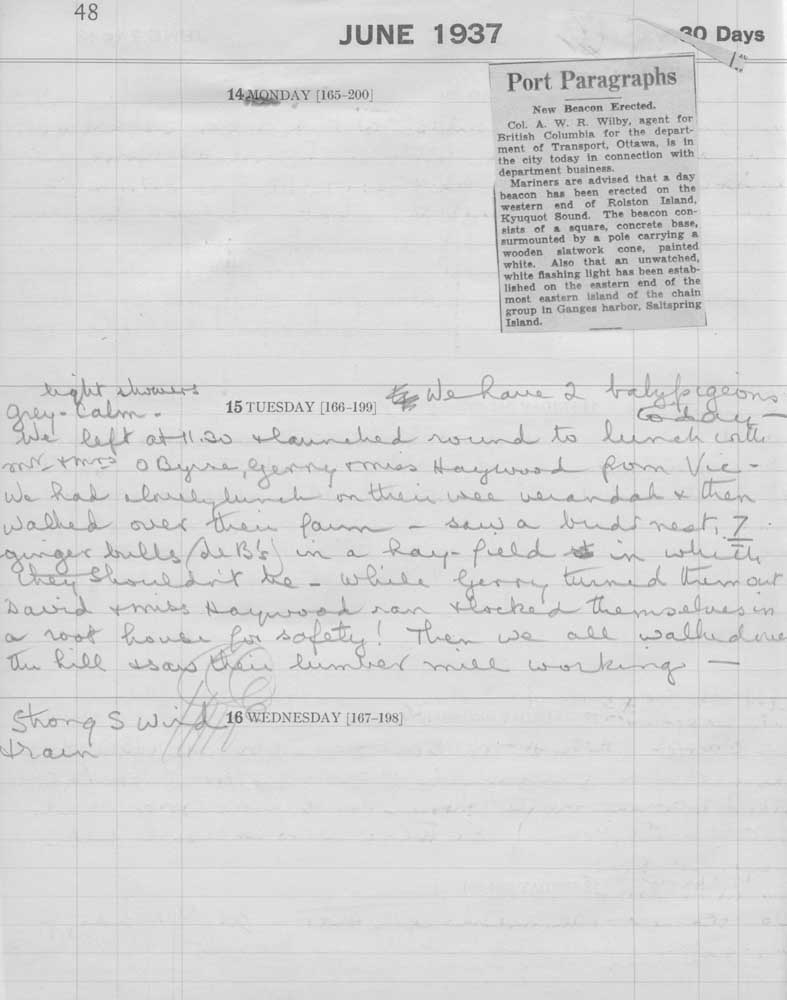 48
JUNE 1937
30 Days
14 MONDAY [165-200]
Port Paragraphs
New Beacon Erected.
Col. A. W. R. Wilby, agent for
British Columbia for the depart-
ment of Transport, Ottawa, is in
the city today in connection with
department business.
Mariners are advised that a day
beacon has been erected on the
western end of Rolston Island,
Kyuquot Sound. The beacon con-
sists of a square, concrete base,
surmounted by a pole carrying a
wooden slatwork cone, painted
white. Also that an unwatched,
white flashing light has been estab-
lished on the eastern end of the
most eastern island of the chain
group in Ganges harbor, Saltspring
Island.
light showers
grey - Calm -
15 TUESDAY [166-199]
We have 2 baby pigeons
today -
We left at 11.30 & launched round to lunch with
Mr & Mrs O Byrne, Gerry & Miss Haywood from Vic -
We had a lovely lunch on their wee verandah & then
walked over their farm - saw a birds nest, 7
ginger bulls (de B's) in a hay-field in which
they shouldn't be - while Gerry turned them out
David & Miss Haywood ran & locked themselves in
a root house for safety! Then we all walked over
the hill & saw their lumber mill working -
Strong S wind
& rain
16 WEDNESDAY [167-198]